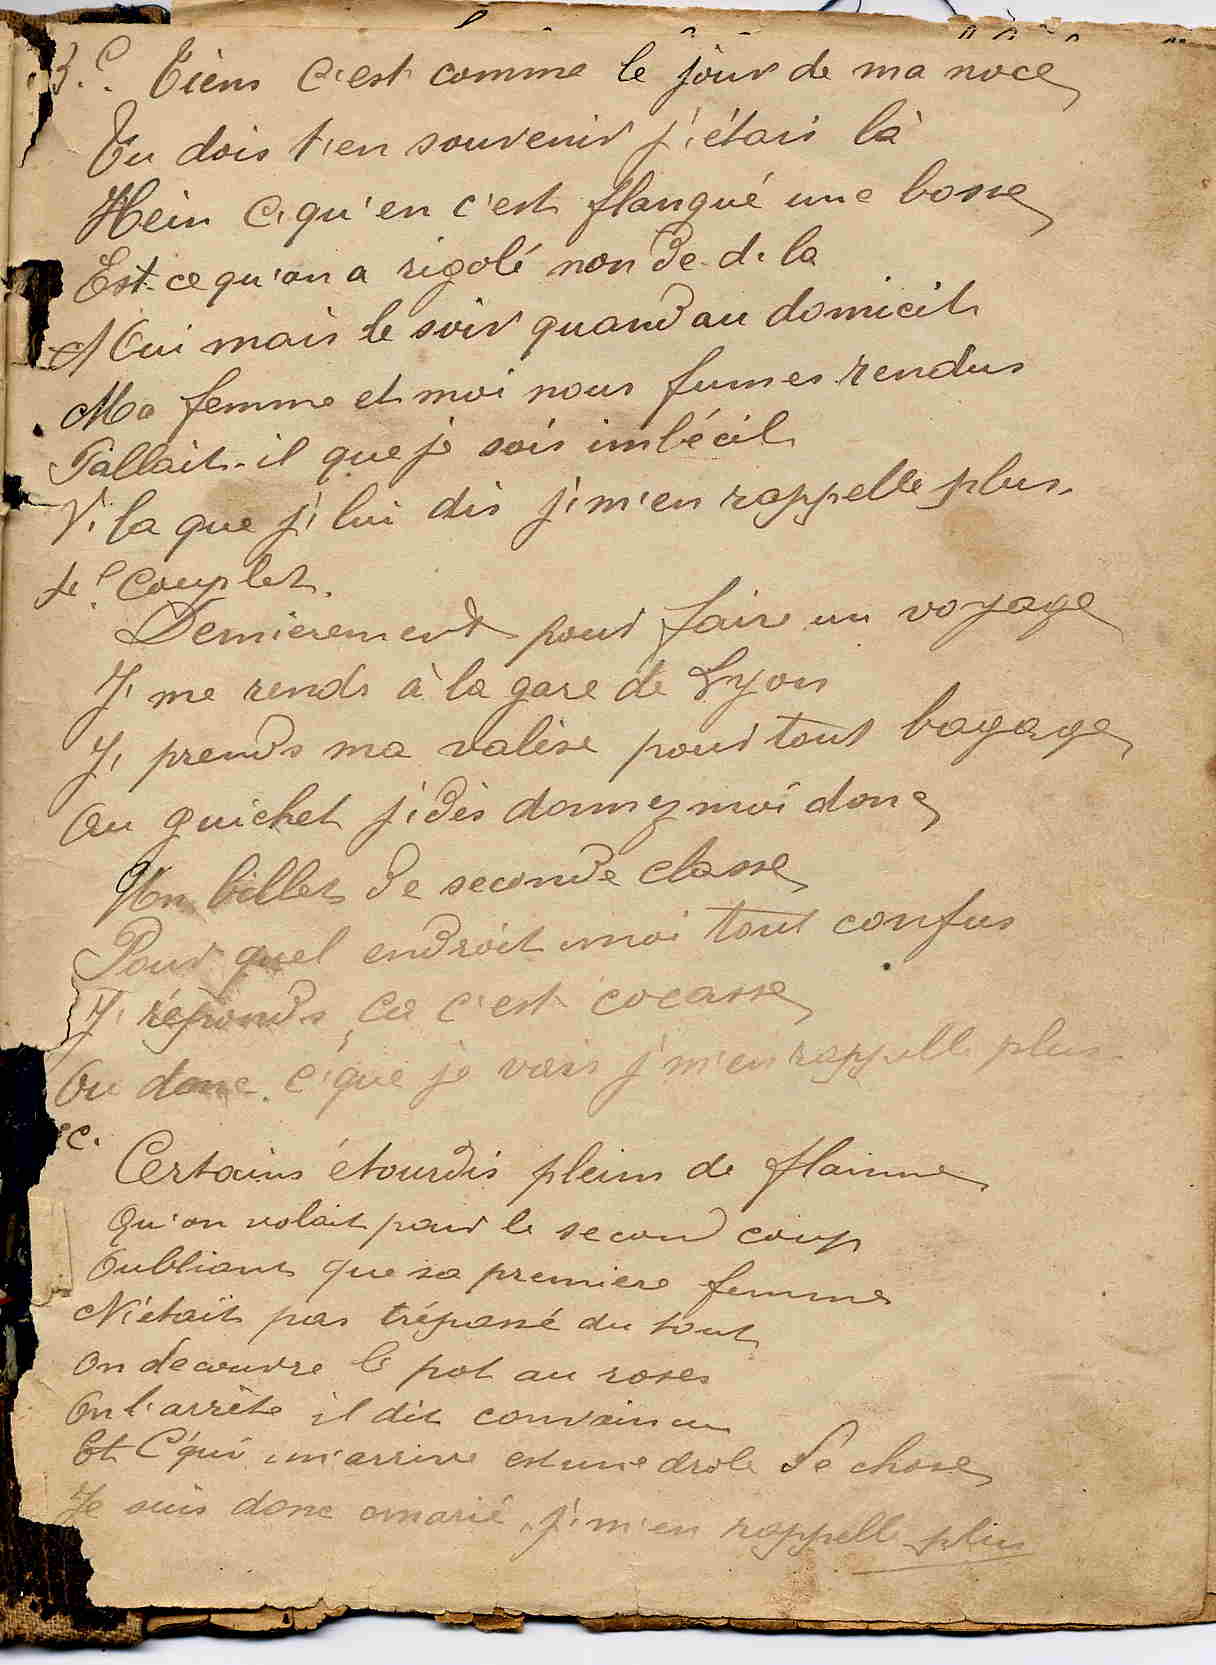 3.e Tiens c'est comme le jour de ma noce
Tu dois t'en souvenir j'étais là
Hein c'qu'en c'est flanqué une bosse
Est-ce qu'on a rigolé non de d. la
Oui mais le soir quand au domicil
Ma femme et moi nous fumes rendus
Fallait-il que je sois imbécil
V'la que j'lui dis j'm'en rappelle plus.
4e Couplet.
Dernierement pour faire un voyage
J'me rends à la gare de Lyon
J'prends ma valise pour tout bagage
Au guichet j'dis donnez moi donc
Un billet de seconde classe
Pour quel endroit moi tout confus
J'réponds ça c'est cocasse
Ou donc c'que je vais j'm'en rappelle plus.
e c.
Certains étourdis pleins de flamme
Qu'on volait pour le second coup
Oubliant que sa premiere femme
N'était pas trépassé du tout
On découvre le pot au roses
On l'arrête il dit convaincu
Et c'qui m'arrive est une drole de chose
Je suis donc marié j'm'en rappelle plus